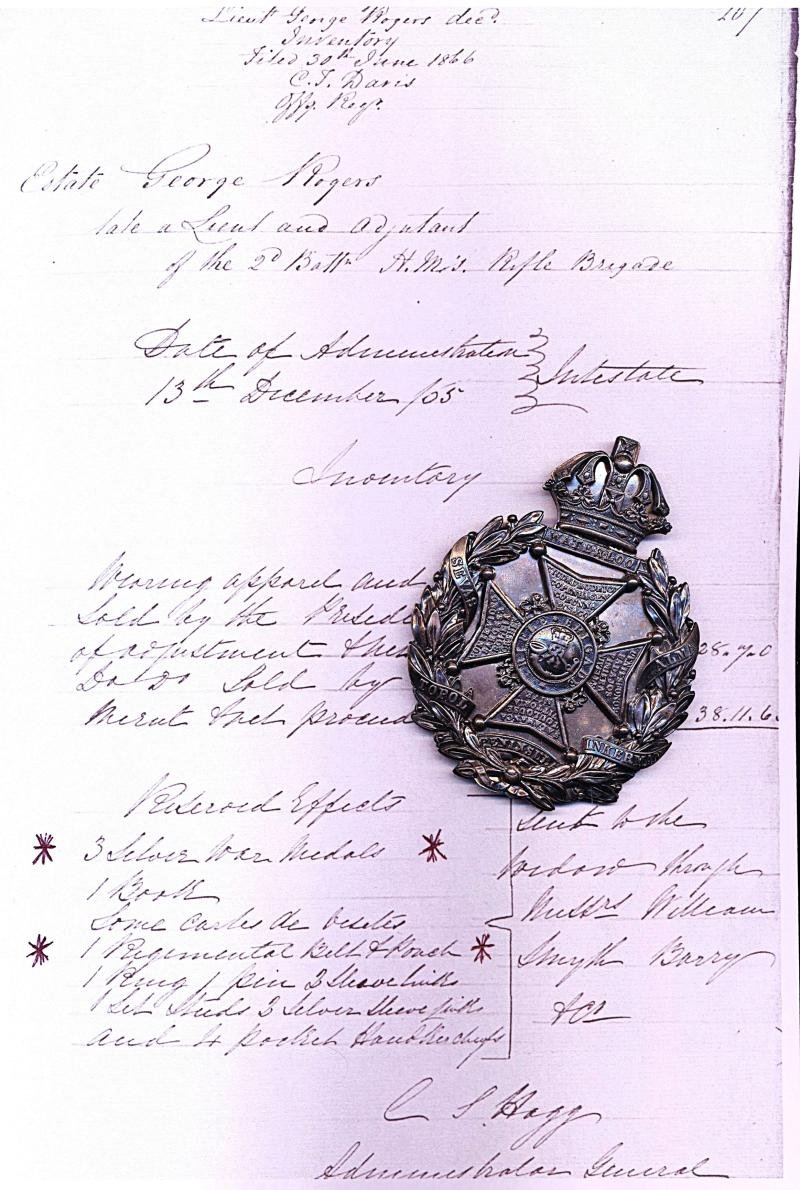 Lieut George Rogers decd.
Inventory
Filed 30th June 1866
C. T. Davis
Offg. Regr.
Estate George Rogers
late a Lieut and Adjutant
of the 2d Battn H.M's. Rifle Brigade
Date of Administration
13th December /65
Intestate
Inventory
Wearing apparel and
Sold by the
of adjustment
28.7.0
Do Do Sold by
38.11.6
WATERLOO
RIFLE BRIGADE
ALMA
INKERMAN
Reserved Effects
3 Silver War Medals
1 Book
Some cartes de visites
1 Regimental Belt & Pouch
1 Ring 1 pin 3 Sleeve links
1 Set Studs 3 Silver Sleeve links
and 4 pocket Handkerchiefs
Sent to the
widow through
Messrs William
Smyth Barry
& Co
C S. Hogg
Administrator General